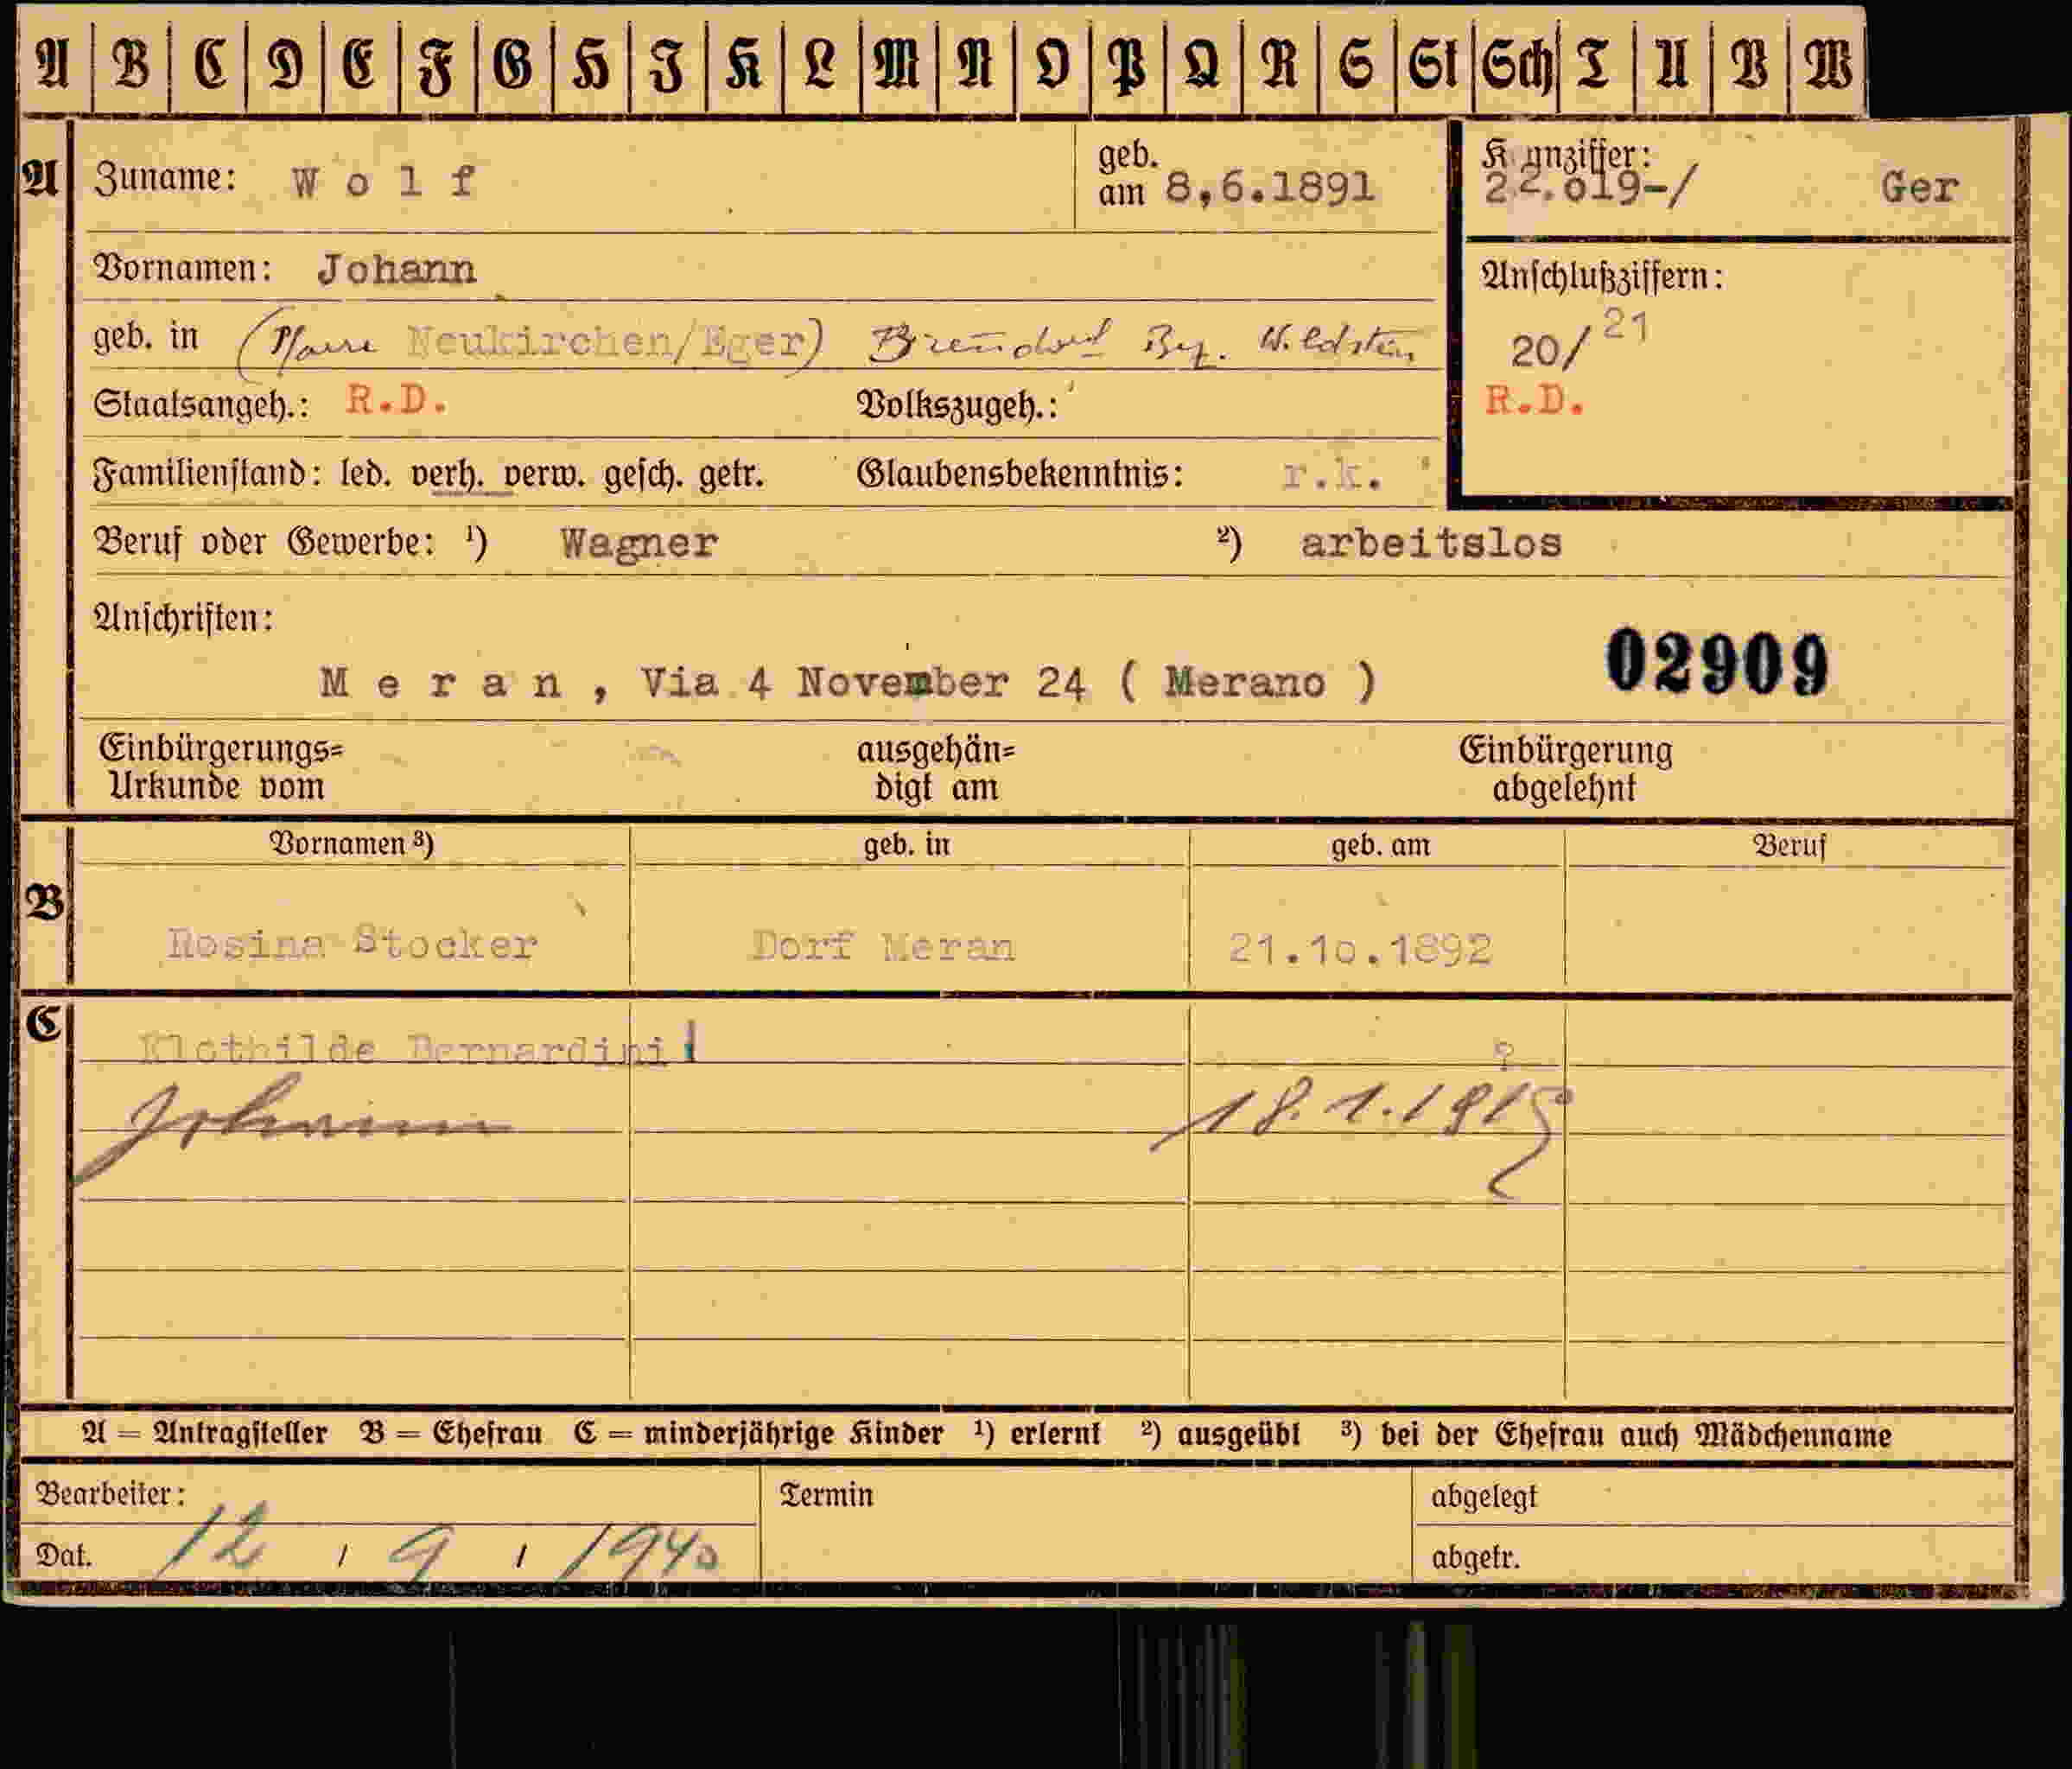 A B C D E F G H J K L M N O P Q R S St Sch T U V W
A Zuname: W o l f geb. am 8,6.1891 Kennziffer: 22.o19-/ Ger
Vornamen: Johann Anschlußziffern:
geb. in (Pfarre Neukirchen/Eger) Bez. Wildstein 20/21
Staatsangeh.: R.D. Volkszugeh.: R.D.
Familienstand: led. verh. verw. gesch. getr. Glaubensbekenntnis: r.k.
Beruf oder Gewerbe: ¹) Wagner ²) arbeitslos
Anschriften:
02909
M e r a n , Via 4 November 24 ( Merano )
Einbürgerungs= ausgehän= Einbürgerung
Urkunde vom digt am abgelehnt
Vornamen ³) geb. in geb. am Beruf
B
Rosina Stocker Dorf Meran 21.1o.1892
C
Klothilde Bernardini ?
Johann 18.1.1915
A = Antragsteller B = Ehefrau C = minderjährige Kinder ¹) erlernt ²) ausgeübt ³) bei der Ehefrau auch Mädchenname
Bearbeiter: Termin abgelegt
Dat. 12 / 9 / 1940 abgetr.